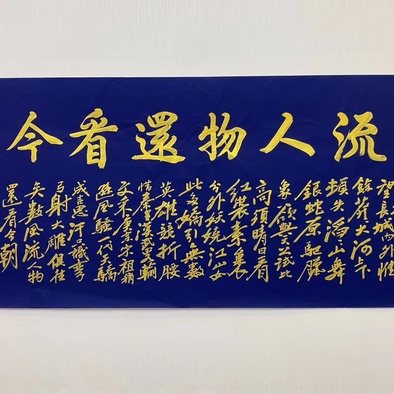 流人物還看今
望長城內外惟
餘莽大河上下
頓失滔滔山舞
銀蛇原馳臘
象欲與天公試比
高須晴日看
紅裝素裹
分外妖嬈江山如
此多嬌引無數
英雄競折腰
惜秦皇漢武略輸
文采唐宗宋祖稍
遜風騷一代天驕
成吉思汗只識彎
弓射大雕俱往
矣數風流人物
還看今朝